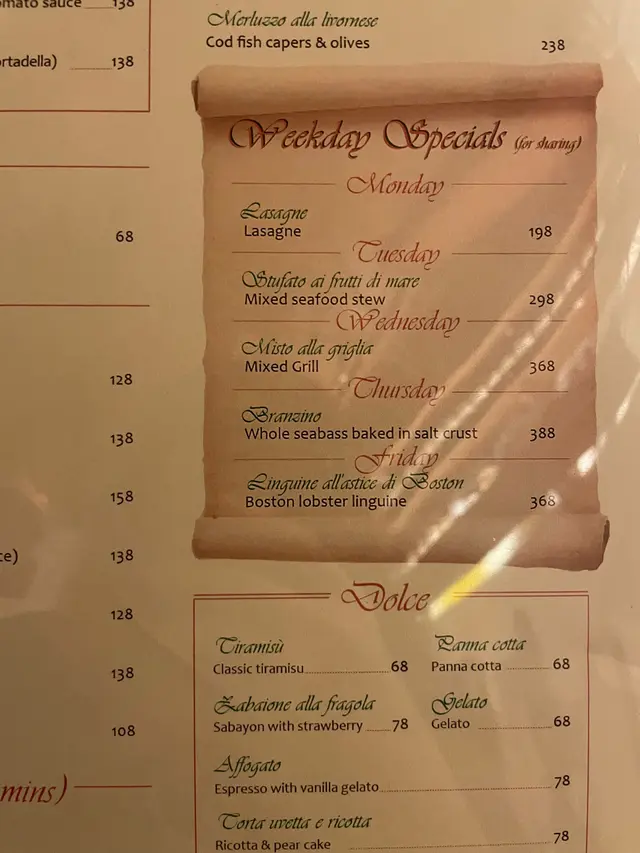 omato sauce 138
ortadella) 138
68
128
138
158
ce) 138
128
138
108
mins)
Merluzzo alla livornese
Cod fish capers & olives 238
Weekday Specials (for sharing)
Monday
Lasagne
Lasagne 198
Tuesday
Stufato ai frutti di mare
Mixed seafood stew 298
Wednesday
Misto alla griglia
Mixed Grill 368
Thursday
Branzino
Whole seabass baked in salt crust 388
Friday
Linguine all'astice di Boston
Boston lobster linguine 368
Dolce
Tiramisù Panna cotta
Classic tiramisu 68 Panna cotta 68
Zabaione alla fragola Gelato
Sabayon with strawberry 78 Gelato 68
Affogato
Espresso with vanilla gelato 78
Torta uvetta e ricotta
Ricotta & pear cake 78